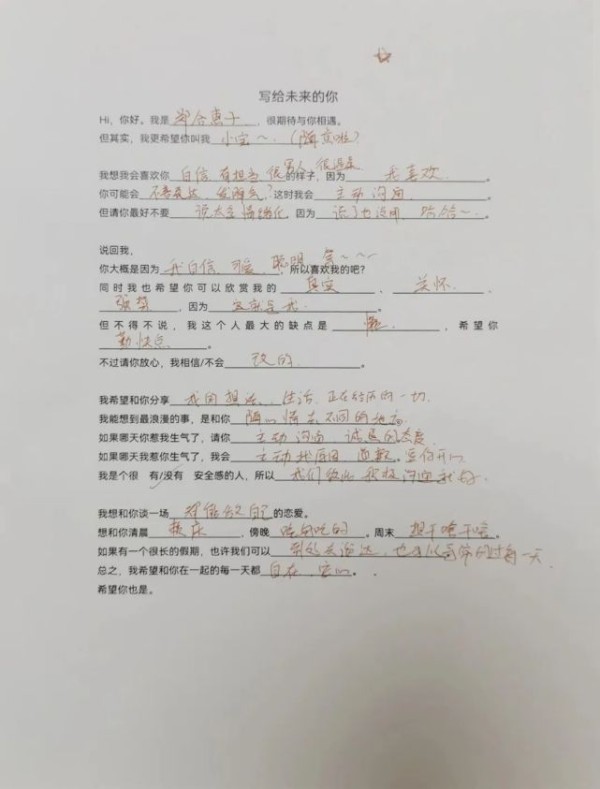 写给未来的你
Hi，你好。我是 郑合惠子，很期待与你相遇。
但其实，我更希望你叫我 小宝～.（随京啦）
我想我会喜欢你 自信 有担当 很男人 很温柔 的样子，因为 我喜欢。
你可能会 不善表达、发脾气？这时我会 主动沟通。
但请你最好不要 说太多情绪化，因为 说了也没用 哈哈～。
说回我，
你大概是因为 我自信、可爱、聪明、 ～～～ 所以喜欢我的吧？
同时我也希望你可以欣赏我的 真实、关怀、
，因为 这就是我。
但不得不说，我这个人最大的缺点是 懒，希望你
勤快点。
不过请你放心，我相信/不会 改的。
我希望和你分享 我的想法、生活、正在经历的一切.
我能想到最浪漫的事，是和你 随心情去不同的地方.
如果哪天你惹我生气了，请你 主动沟通 诚恳的态度
如果哪天我惹你生气了，我会 主动 道歉。 开心
我是个很 有/没有 安全感的人，所以 我们 沟通就好。
我想和你谈一场 的恋爱。
想和你清晨 赖床，傍晚 吃 吃的，周末 想干啥干啥。
如果有一个很长的假期，也许我们可以 到处去 ，也可以 的过每一天.
总之，我希望和你在一起的每一天都 自在、安心。
希望你也是。